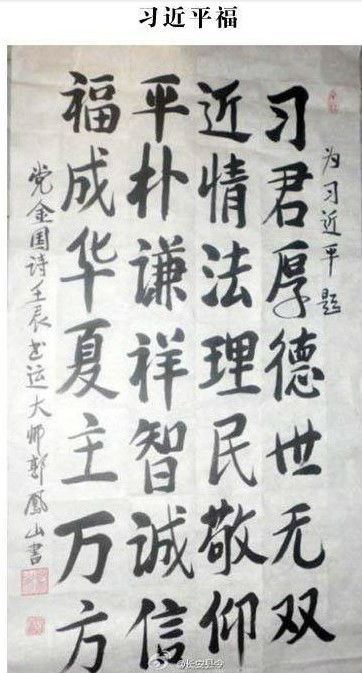 习近平福
为习近平题
习君厚德世无双
近情法理民敬仰
平朴谦祥智诚信
福成华夏主万方
党金国诗壬辰书运大师郭凤山书
@长安县令